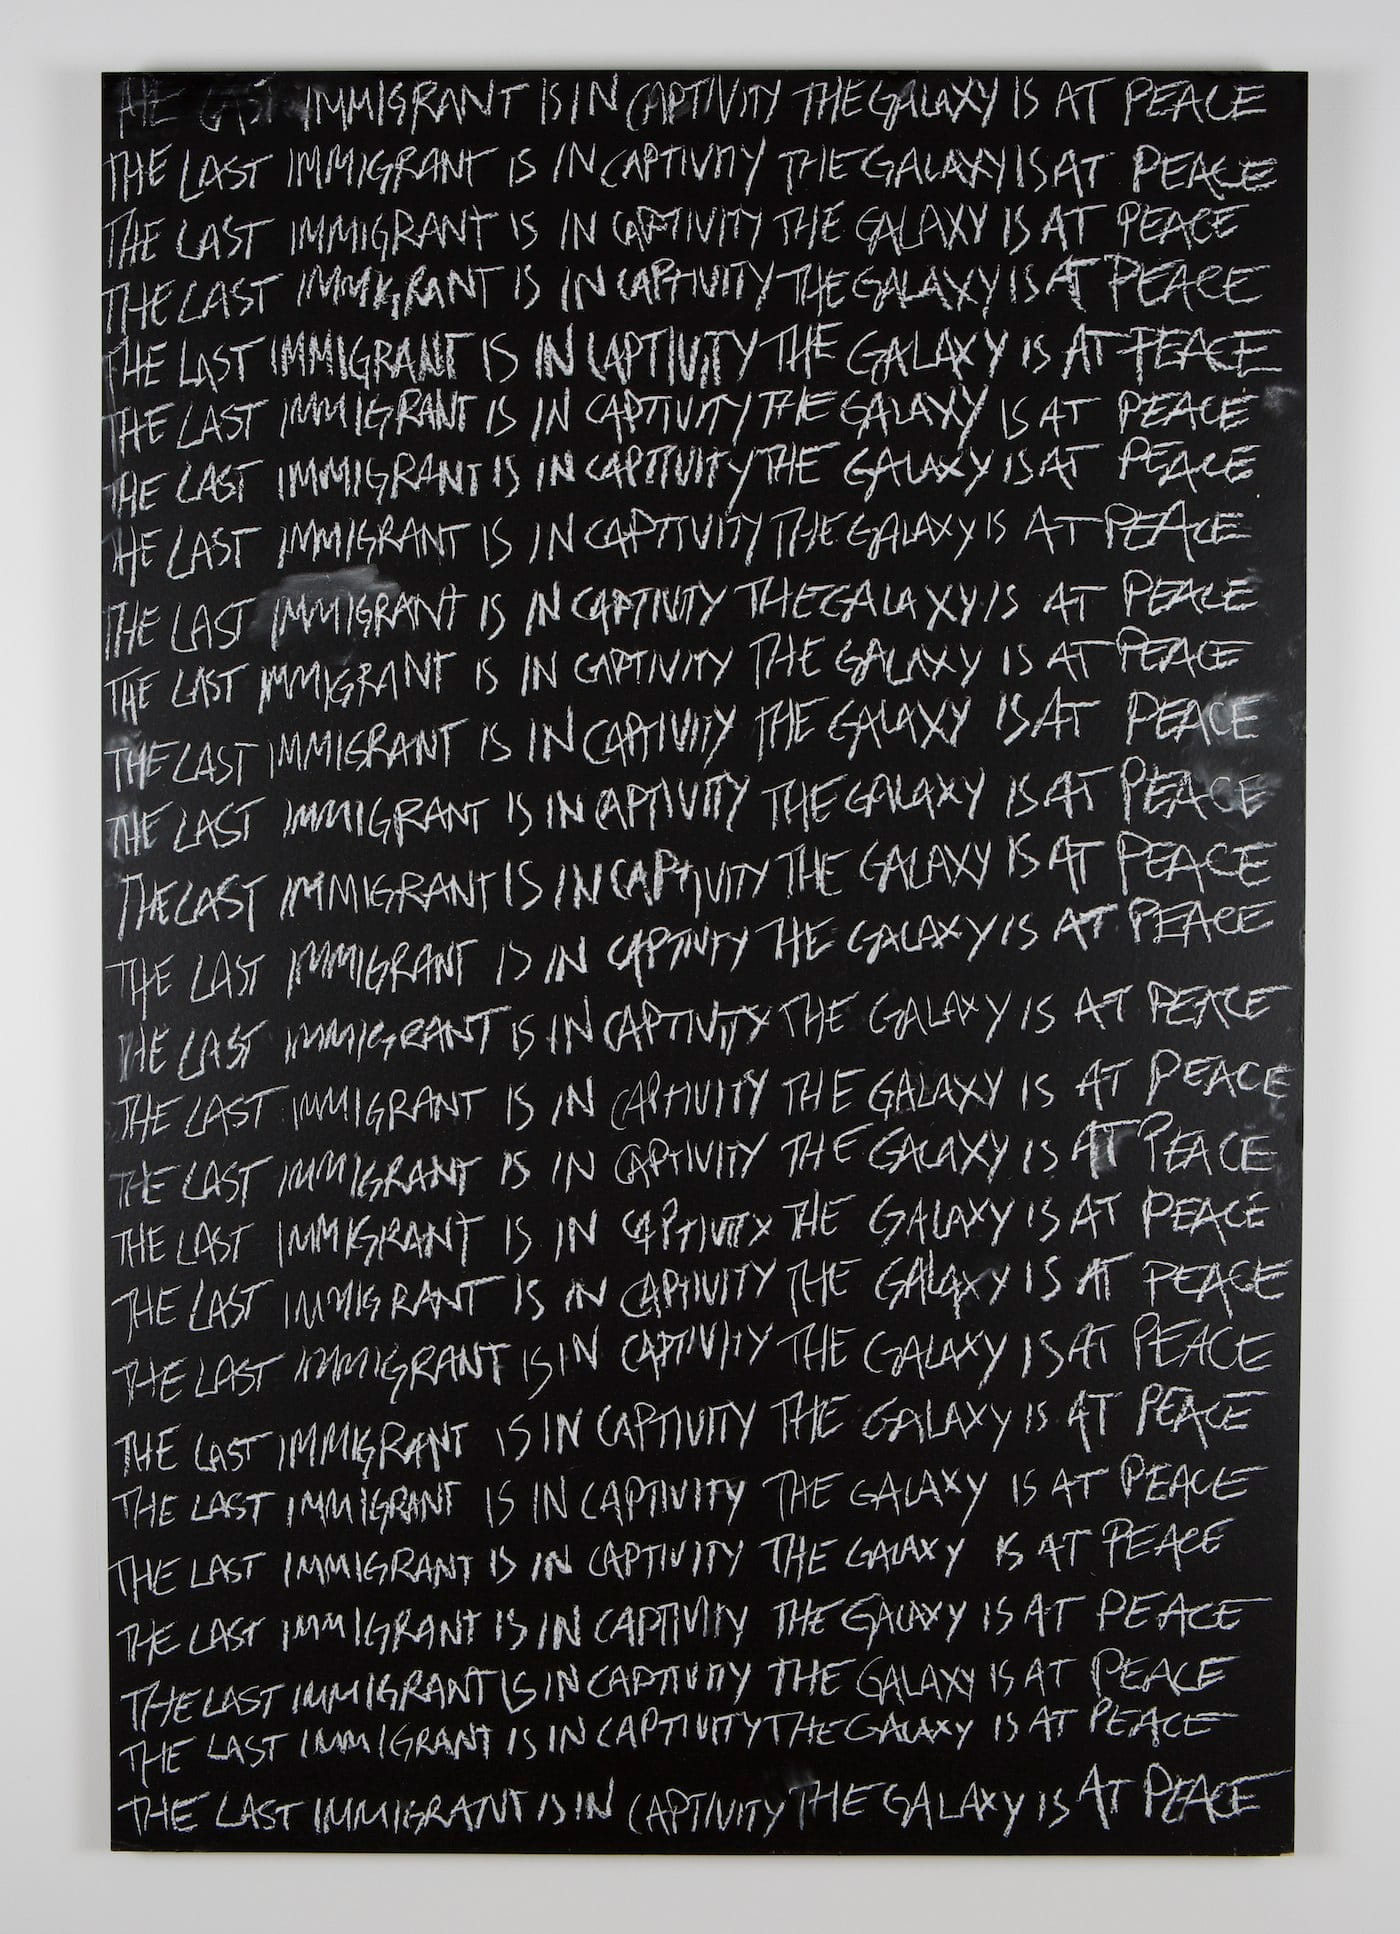 THE LAST IMMIGRANT IS IN CAPTIVITY THE GALAXY IS AT PEACE
THE LAST IMMIGRANT IS IN CAPTIVITY THE GALAXY IS AT PEACE
THE LAST IMMIGRANT IS IN CAPTIVITY THE GALAXY IS AT PEACE
THE LAST IMMIGRANT IS IN CAPTIVITY THE GALAXY IS AT PEACE
THE LAST IMMIGRANT IS IN CAPTIVITY THE GALAXY IS AT PEACE
THE LAST IMMIGRANT IS IN CAPTIVITY THE GALAXY IS AT PEACE
THE LAST IMMIGRANT IS IN CAPTIVITY THE GALAXY IS AT PEACE
THE LAST IMMIGRANT IS IN CAPTIVITY THE GALAXY IS AT PEACE
THE LAST IMMIGRANT IS IN CAPTIVITY THE GALAXY IS AT PEACE
THE LAST IMMIGRANT IS IN CAPTIVITY THE GALAXY IS AT PEACE
THE LAST IMMIGRANT IS IN CAPTIVITY THE GALAXY IS AT PEACE
THE LAST IMMIGRANT IS IN CAPTIVITY THE GALAXY IS AT PEACE
THE LAST IMMIGRANT IS IN CAPTIVITY THE GALAXY IS AT PEACE
THE LAST IMMIGRANT IS IN CAPTIVITY THE GALAXY IS AT PEACE
THE LAST IMMIGRANT IS IN CAPTIVITY THE GALAXY IS AT PEACE
THE LAST IMMIGRANT IS IN CAPTIVITY THE GALAXY IS AT PEACE
THE LAST IMMIGRANT IS IN CAPTIVITY THE GALAXY IS AT PEACE
THE LAST IMMIGRANT IS IN CAPTIVITY THE GALAXY IS AT PEACE
THE LAST IMMIGRANT IS IN CAPTIVITY THE GALAXY IS AT PEACE
THE LAST IMMIGRANT IS IN CAPTIVITY THE GALAXY IS AT PEACE
THE LAST IMMIGRANT IS IN CAPTIVITY THE GALAXY IS AT PEACE
THE LAST IMMIGRANT IS IN CAPTIVITY THE GALAXY IS AT PEACE
THE LAST IMMIGRANT IS IN CAPTIVITY THE GALAXY IS AT PEACE
THE LAST IMMIGRANT IS IN CAPTIVITY THE GALAXY IS AT PEACE
THE LAST IMMIGRANT IS IN CAPTIVITY THE GALAXY IS AT PEACE
THE LAST IMMIGRANT IS IN CAPTIVITY THE GALAXY IS AT PEACE
THE LAST IMMIGRANT IS IN CAPTIVITY THE GALAXY IS AT PEACE